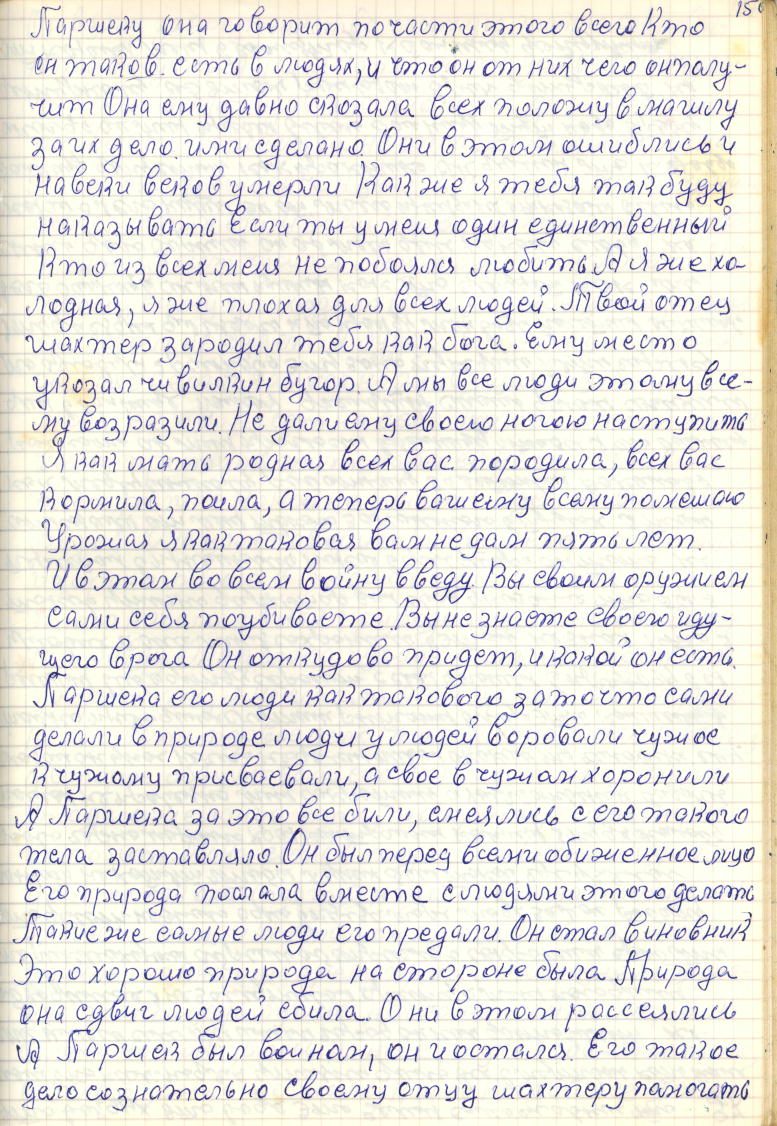 150
Паршеку она говорит по части этого всего Кто
он таков. есть в людях, и что он от них чего он палу-
чит Она ему давно сказала всех положу в магилу
за их дело. ими сделано. Они в этом ошиблись и
на веки веков умерли Как же я тебя так буду
наказывать Если ты у меня один единственный
Кто из всех меня не побоялся любить. А я же хо-
лодная, я же плохая для всех людей. Твой отец
шахтер зародил тебя как бога. Ему место
указал чивилкин бугор. А мы все люди этому все-
му возразили. Не дали ему своею ногою наступить
Я как мать родная всех вас породила, всех вас
кормила, поила, а теперь вашему всему помешаю
Урожая я как таковая вам не дам пять лет.
И в этом во всем войну введу Вы своим оружием
сами себя поубиваете. Вы не знаете своего иду-
щего врага Он откудова придет, и какой он есть.
Паршека его люди как такового за то что сами
делали в природе люди у людей воровали чужое
к чужому присваевали, а свое в чужом хоронили
А Паршека за это все били, смеялись с его такого
тела заставляло. Он был перед всеми обиженное лицо
Его природа послала вместе с людями этого делать
Такие же самые люди его предали. Он стал виновник
Это хорошо природа на стороне была Природа
она сдвиг людей сбила. Они в этом рассеялись
А Паршек был воином, он и остался. Его такое
дело сознательно своему отцу шахтеру памогать